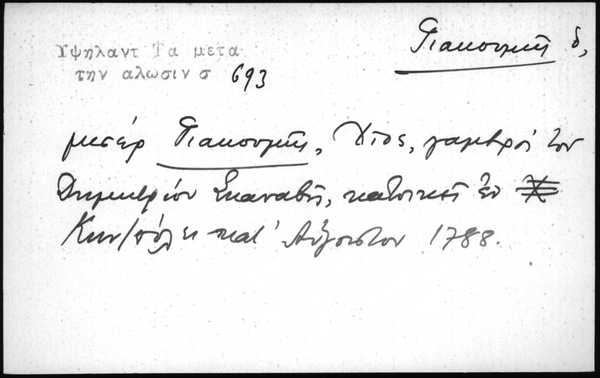 Υψηλαντ Τα μετα
την αλωσιν σ 693
Γιακουμῆς δ,
μισέρ Γιακουμῆς, Χῖος, γαμβρὸς τοῦ
Δημητρίου Σκαναβῆ, κάτοικος ἐν
Κων/πόλει κατ' Αὔγουστον 1788.